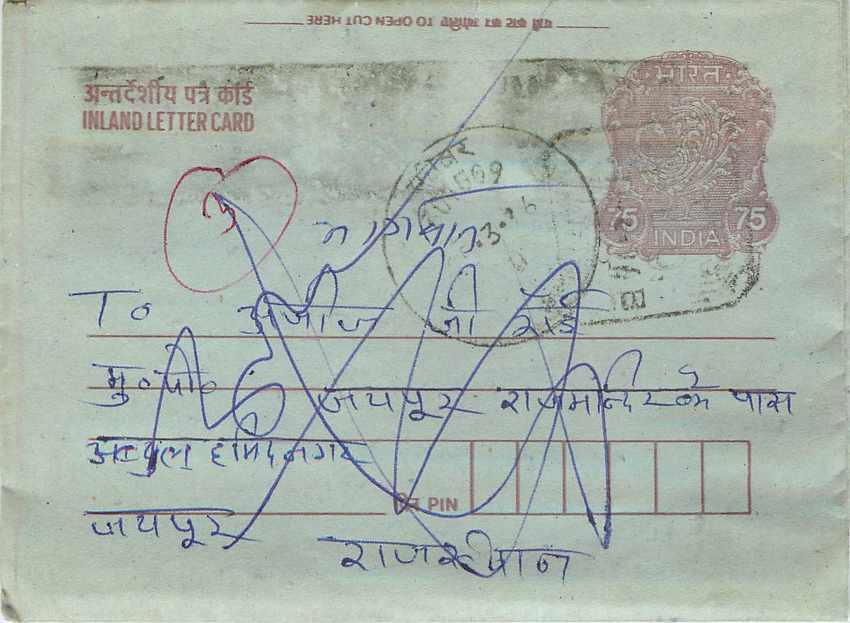 यहाँ काट कर खोलिए TO OPEN CUT HERE
भारत
अन्तर्देशीय पत्र कार्ड
INLAND LETTER CARD
75 75
INDIA
To अजीज जी
मु॰ पो॰ जयपूर राजमन्दिर के पास
नगर
पिन PIN
जयपूर
राजस्थान